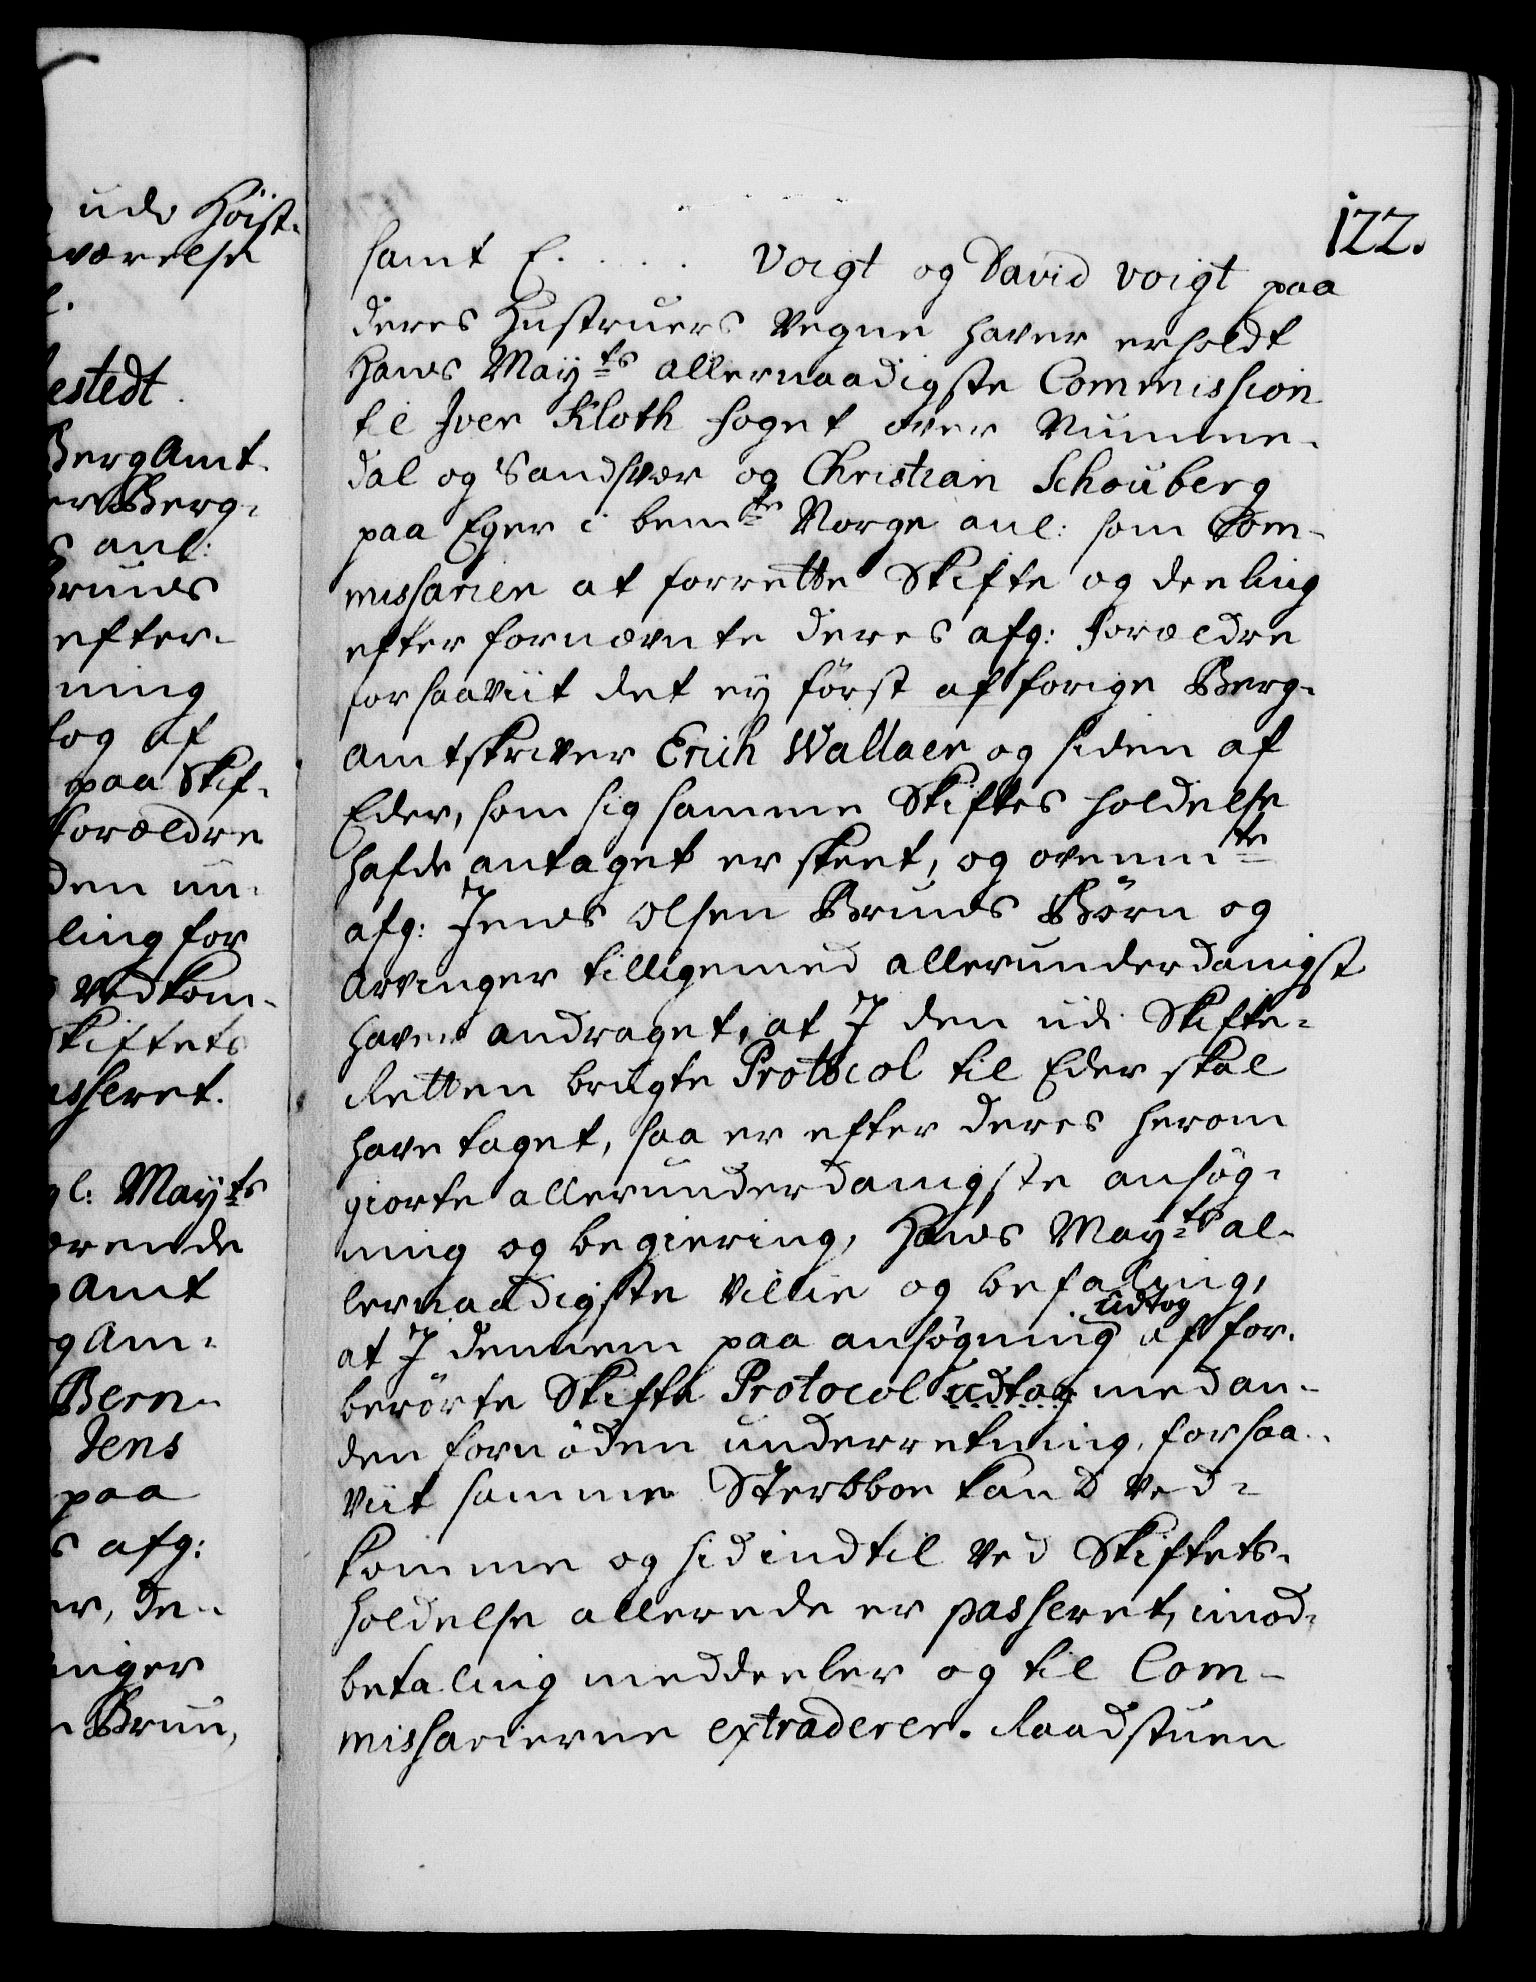 udi Höist-
værelse
l.
estedt.
BergAmt-
er Berg-
s anl:
Bruuns
efter-
ning
tog af
paa Skif-
forældre
den un-
ling for
Vedkom-
Skiftets
isseret.
gl: Mayts
ærende
Amt
gAm-
Bern-
Jens
paa
s afg:
er, de-
inger
n Bruun,
122.
samt E. . . . . Voigt og David Voigt paa
deres Hustruers Vegne haver erholdt
Hans Mayts allernaadigste Commission
til Iver Kloth foget over Numme-
dal og Sandsvær og Christian Schouberg
paa Eger i bemte Norge anl: som Com-
missarier at forrette Skifte og deeling
efter fornævnte deres afg: forældre
forsaaviit det ey först af forige Berg-
amtskriver Erich Wallaer og siden af
Eder, som sig samme Skiftes holdelse
hafde antaget er skeet, og ovenmte
afg: Jens Olsen Bruuns Börn og
arvinger tilligemed allerunderdanigst
haver andraget, at I den udi Skifte-
Retten brugte Protocol til Eder skal
have taget, saa er efter deres herom
giorte allerunderdanigste ansög-
ning og begiering, Hans Mayts al-
lernaadigste Villie og befaling,
at I dennem paa ansögning udtog af for-
berörte Skifte Protocol udtog med an-
den fornöden underretning, forsaa-
viit samme Sterbboe kand ved-
komme og sid indtil ved Skiftets-
holdelse allerede er passeret, imod-
betaling meddeeler og til Com-
missarierne extraderer. Raadstuen